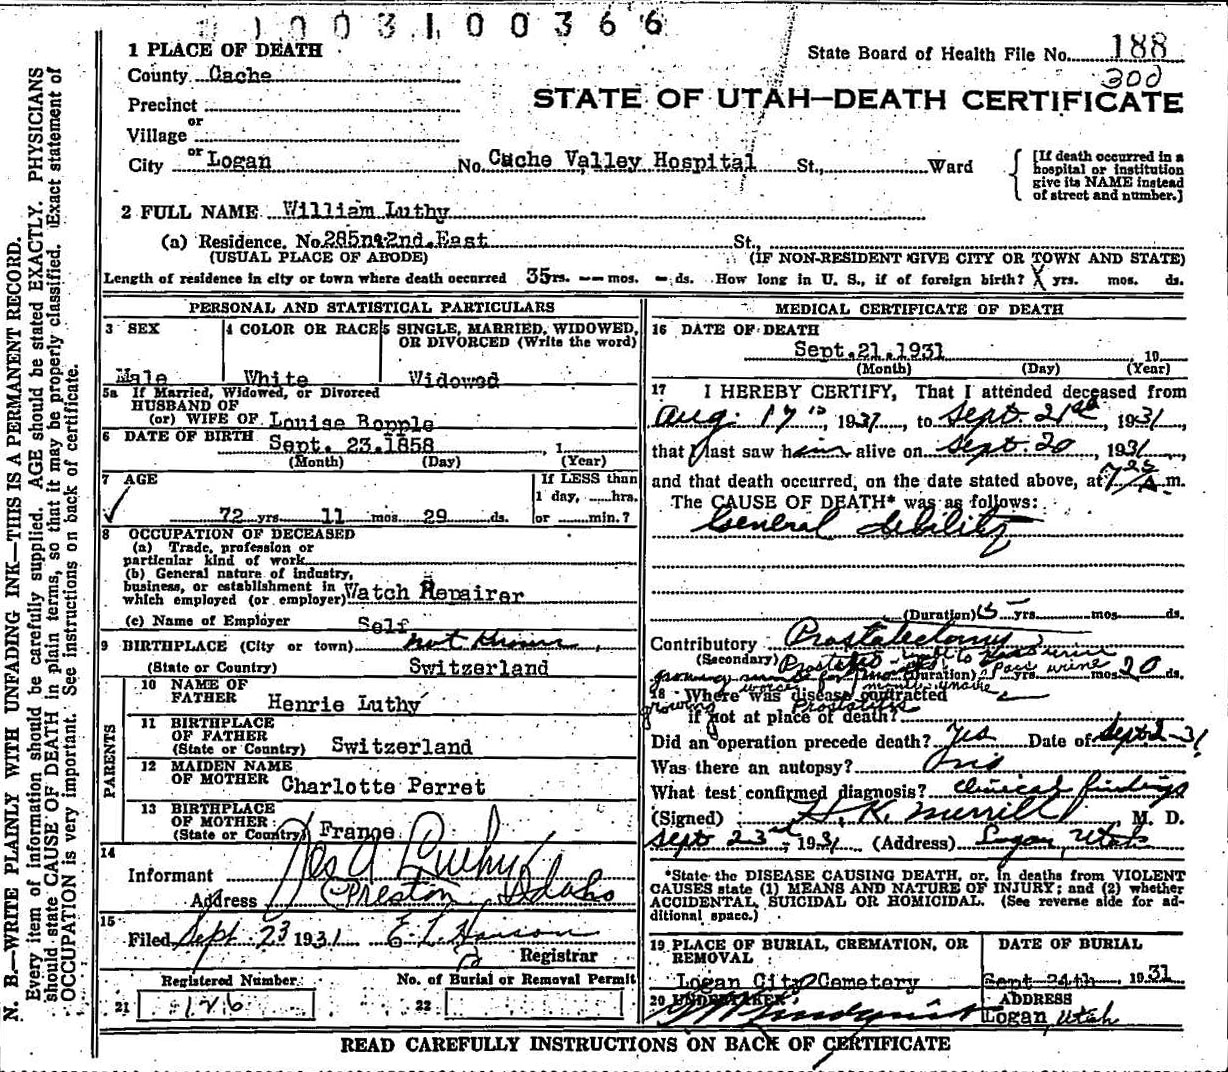 1003100366
1 PLACE OF DEATH
State Board of Health File No. 188
300
County Cache
STATE OF UTAH—DEATH CERTIFICATE
Precinct
or
Village
or
City Logan No. Cache Valley Hospital St., Ward
[If death occurred in a
hospital or institution
give its NAME instead
of street and number.]
2 FULL NAME William Luthy
(a) Residence. No. 285 n. 2nd. East St.,
(USUAL PLACE OF ABODE) (IF NON-RESIDENT GIVE CITY OR TOWN AND STATE)
Length of residence in city or town where death occurred 35 yrs. -- mos. - ds. How long in U. S., if of foreign birth? X yrs. mos. ds.
PERSONAL AND STATISTICAL PARTICULARS
3 SEX
4 COLOR OR RACE
5 SINGLE, MARRIED, WIDOWED,
OR DIVORCED (Write the word)
Male White Widowed
5a If Married, Widowed, or Divorced
HUSBAND OF
(or) WIFE OF Louise Bopple
6 DATE OF BIRTH Sept. 23.1858, 1
(Month) (Day) (Year)
7 AGE
If LESS than
1 day, hrs.
72 yrs. 11 mos. 29 ds. or min.?
8 OCCUPATION OF DECEASED
(a) Trade, profession or
particular kind of work
(b) General nature of industry,
business, or establishment in
which employed (or employer) Watch Repairer
(c) Name of Employer Self
9 BIRTHPLACE (City or town) not known
(State or Country) Switzerland
PARENTS
10 NAME OF
FATHER Henrie Luthy
11 BIRTHPLACE
OF FATHER
(State or Country) Switzerland
12 MAIDEN NAME
OF MOTHER Charlotte Perret
13 BIRTHPLACE
OF MOTHER
(State or Country) France
14
Informant Jos A Luthy
Address Preston, Idaho
15
Filed Sept. 23 1931 E. L. Hanson
Registrar
Registered Number No. of Burial or Removal Permit
21 126 22
MEDICAL CERTIFICATE OF DEATH
16 DATE OF DEATH
Sept.21.1931 19
(Month) (Day) (Year)
17 I HEREBY CERTIFY, That I attended deceased from
Aug. 17th, 1931, to Sept. 21st, 1931
that I last saw him alive on Sept. 20, 1931,
and that death occurred, on the date stated above, at 7 A. m.
The CAUSE OF DEATH* was as follows:
General debility
(Duration) 15 yrs. mos. ds.
Contributory Prostatectomy
(Secondary)
(Duration) yrs. mos. 20 ds.
18 Where was disease contracted
if not at place of death?
Did an operation precede death? Yes Date of Sept 2-31
Was there an autopsy? no
What test confirmed diagnosis? clinical findings
(Signed) H. K. Merrill M. D.
Sept 23rd, 1931 (Address) Logan, Utah
*State the DISEASE CAUSING DEATH, or, in deaths from VIOLENT
CAUSES state (1) MEANS AND NATURE OF INJURY; and (2) whether
ACCIDENTAL, SUICIDAL OR HOMICIDAL. (See reverse side for ad-
ditional space.)
19 PLACE OF BURIAL, CREMATION, OR
REMOVAL
DATE OF BURIAL
Logan City Cemetery Sept 24th 1931
20 UNDERTAKER
ADDRESS
Logan, Utah
READ CAREFULLY INSTRUCTIONS ON BACK OF CERTIFICATE
N. B.—WRITE PLAINLY WITH UNFADING INK—THIS IS A PERMANENT RECORD.
Every item of information should be carefully supplied. AGE should be stated EXACTLY. PHYSICIANS
should state CAUSE OF DEATH in plain terms, so that it may be properly classified. Exact statement of
OCCUPATION is very important. See instructions on back of certificate.